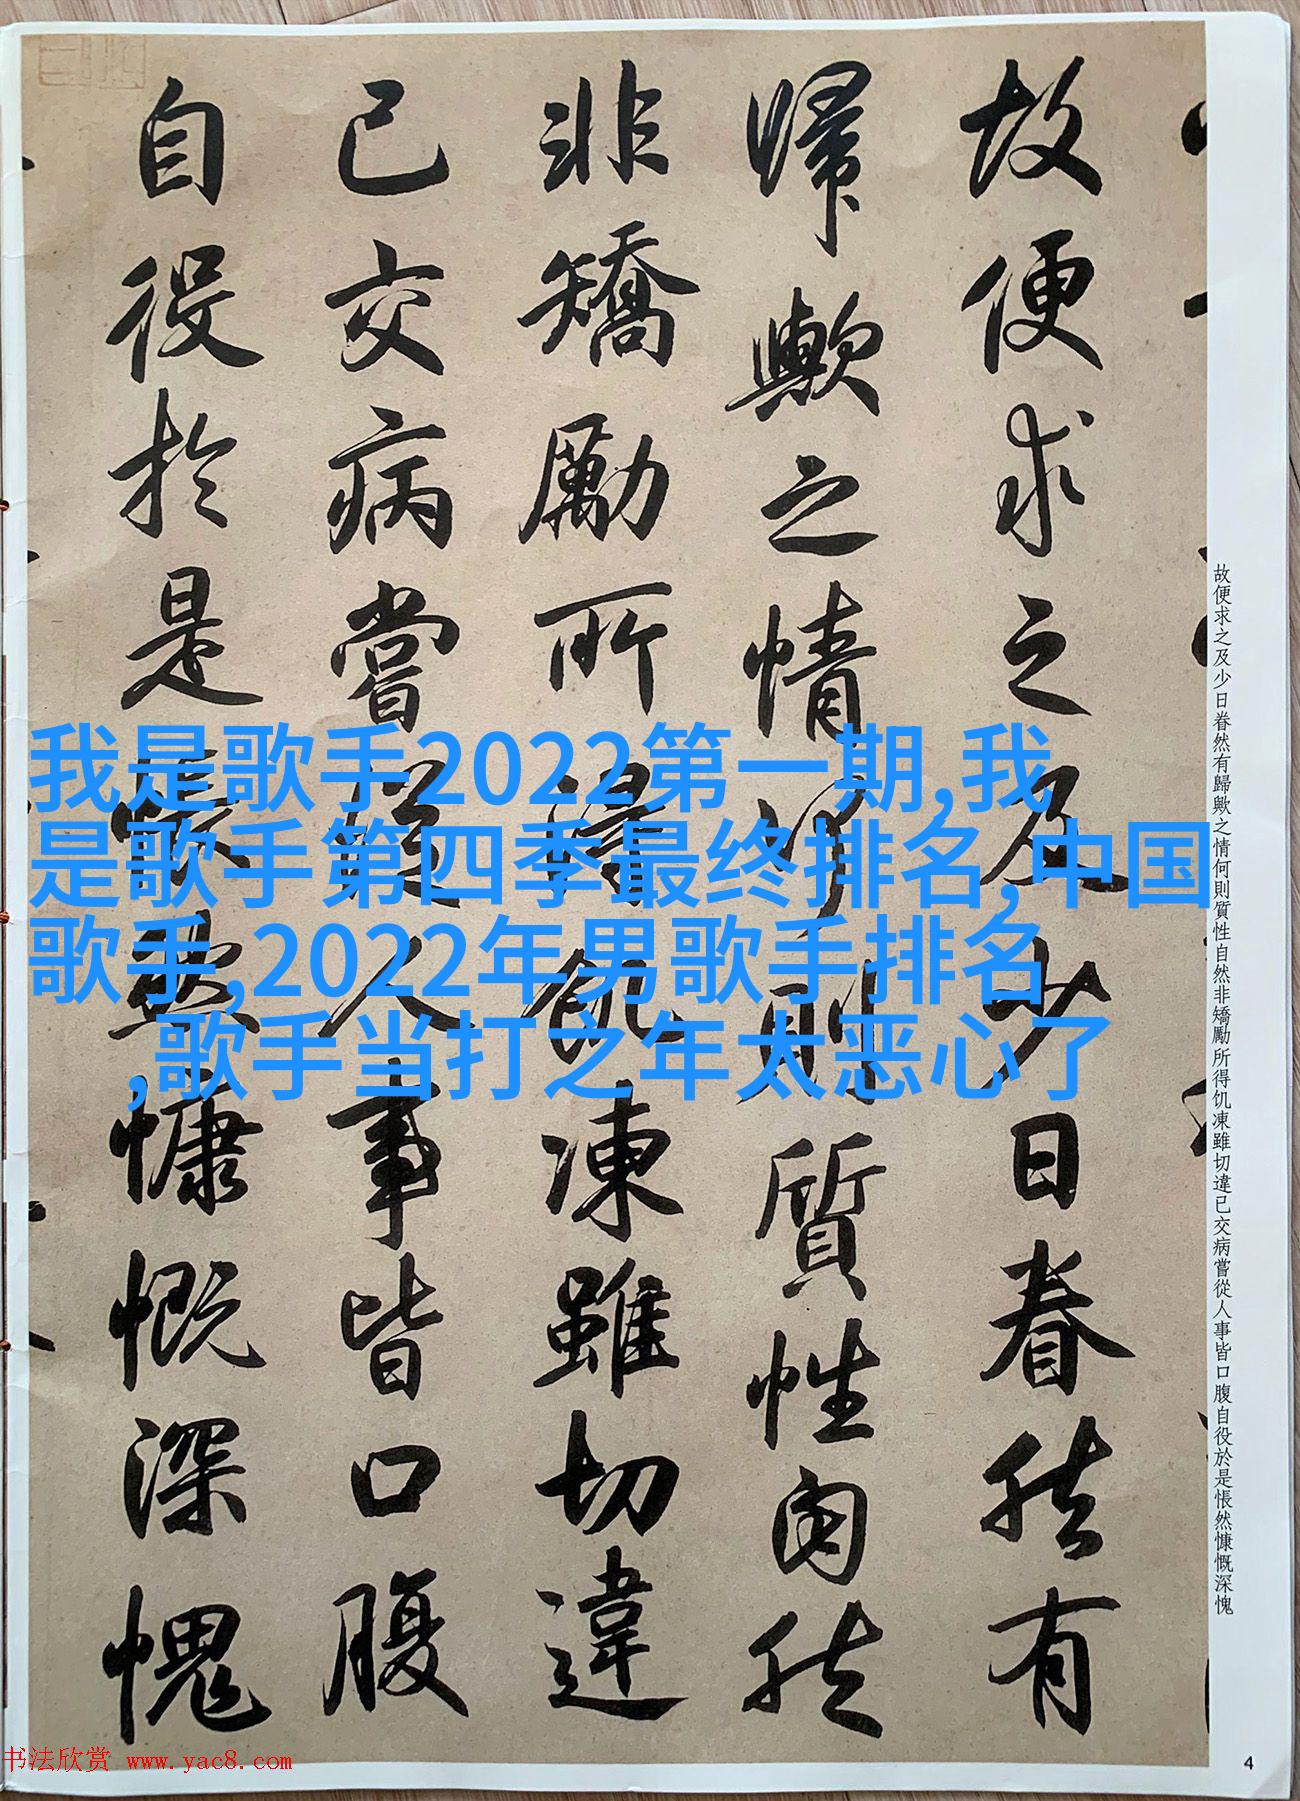 故便求之及少日眷然有歸歟之情何則質性自然非矯勵所得饥凍雖切違已交病嘗從人事皆口腹自役於是悵然慷慨深愧
故便求之及少日眷然有
歸歟之情何則質性自然
非矯勵所得飢凍雖切違
已交病嘗從人事皆口腹
自役於是悵然慷慨深愧
我是歌手2022第一期,我
是歌手第四季最终排名,中国
歌手,2022年男歌手排名
,歌手当打之年太恶心了
书法欣赏 www.yac8.com
4